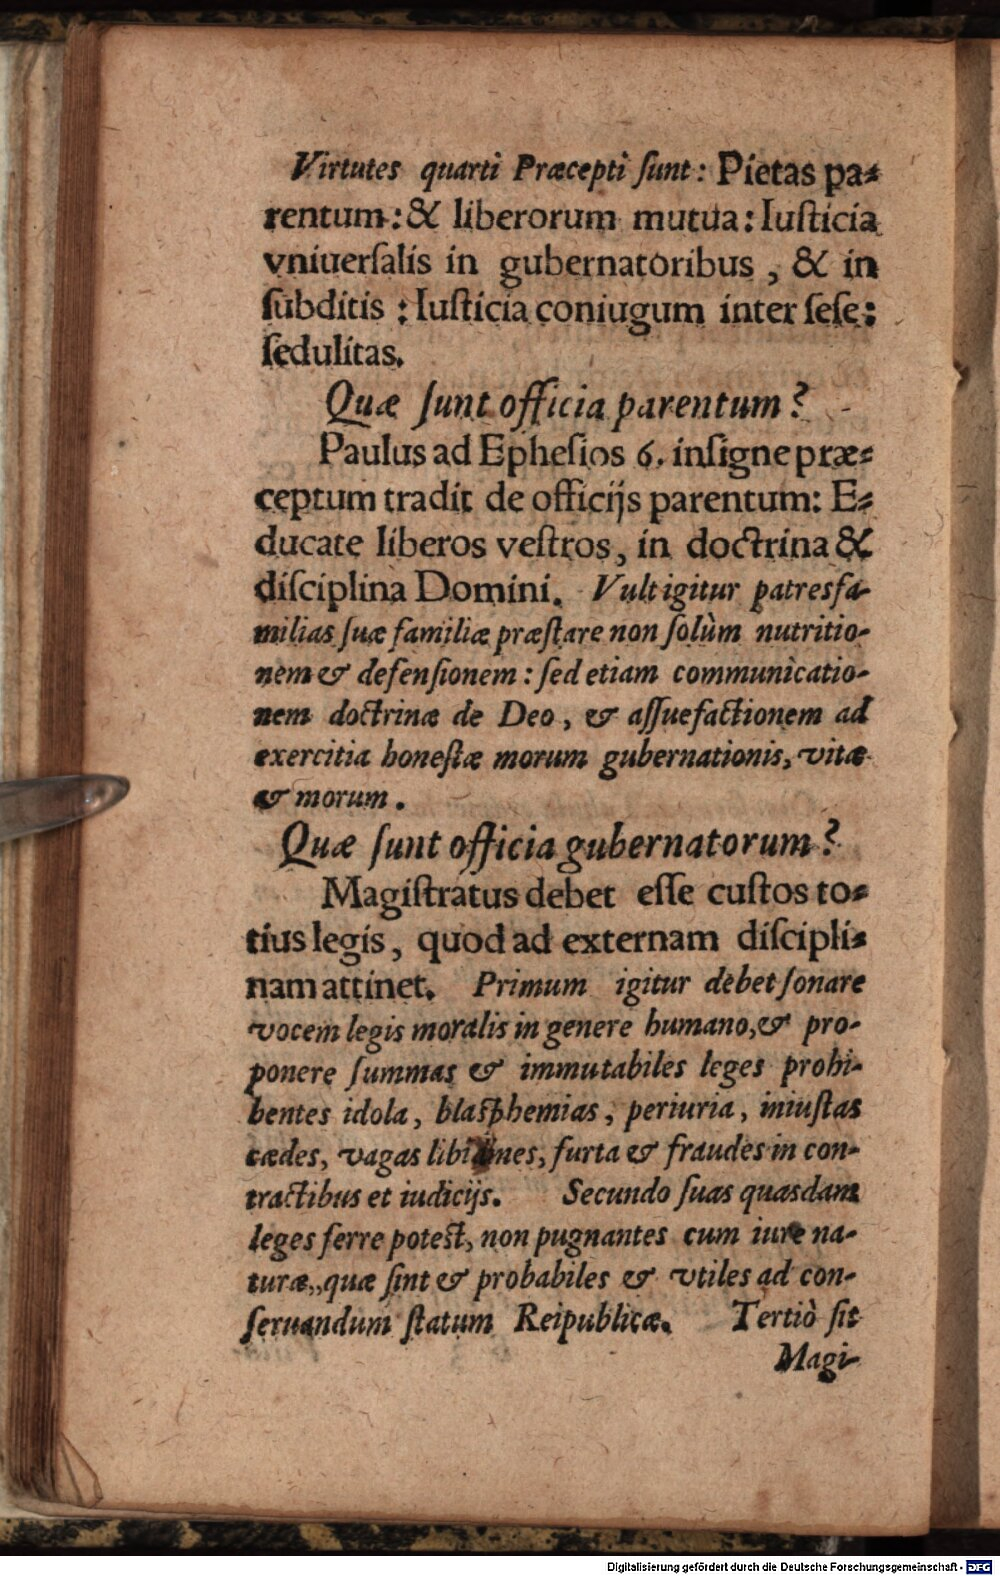 Virtutes quarti Præcepti ſunt: Pietas pa-
rentum: & liberorum mutua: Iuſticia
vniuerſalis in gubernatoribus, & in
ſubditis: Iuſticia coniugum inter ſeſe:
ſedulitas.
Quæ ſunt officia parentum?
Paulus ad Epheſios 6. inſigne præ-
ceptum tradit de officijs parentum: E-
ducate liberos veſtros, in doctrina &
diſciplina Domini. Vult igitur patresfa-
milias ſuæ familiæ præſtare non ſolùm nutritio-
nem & defenſionem: ſed etiam communicatio-
nem doctrinæ de Deo, & aſſuefactionem ad
exercitia honeſtæ morum gubernationis, vitæ
& morum.
Quæ ſunt officia gubernatorum?
Magiſtratus debet eſſe cuſtos to-
tius legis, quod ad externam diſcipli-
nam attinet. Primum igitur debet ſonare
vocem legis moralis in genere humano, & pro-
ponere ſummas & immutabiles leges prohi-
bentes idola, blaſphemias, periuria, iniuſtas
cædes, vagas libidines, furta & fraudes in con-
tractibus et iudicijs. Secundo ſuas quasdam
leges ferre poteſt, non pugnantes cum iure na-
turæ,, quæ ſint & probabiles & vtiles ad con-
ſeruandum ſtatum Reipublicæ. Tertiò ſit
Magi-
Digitalisierung gefördert durch die Deutsche Forschungsgemeinschaft - DFG